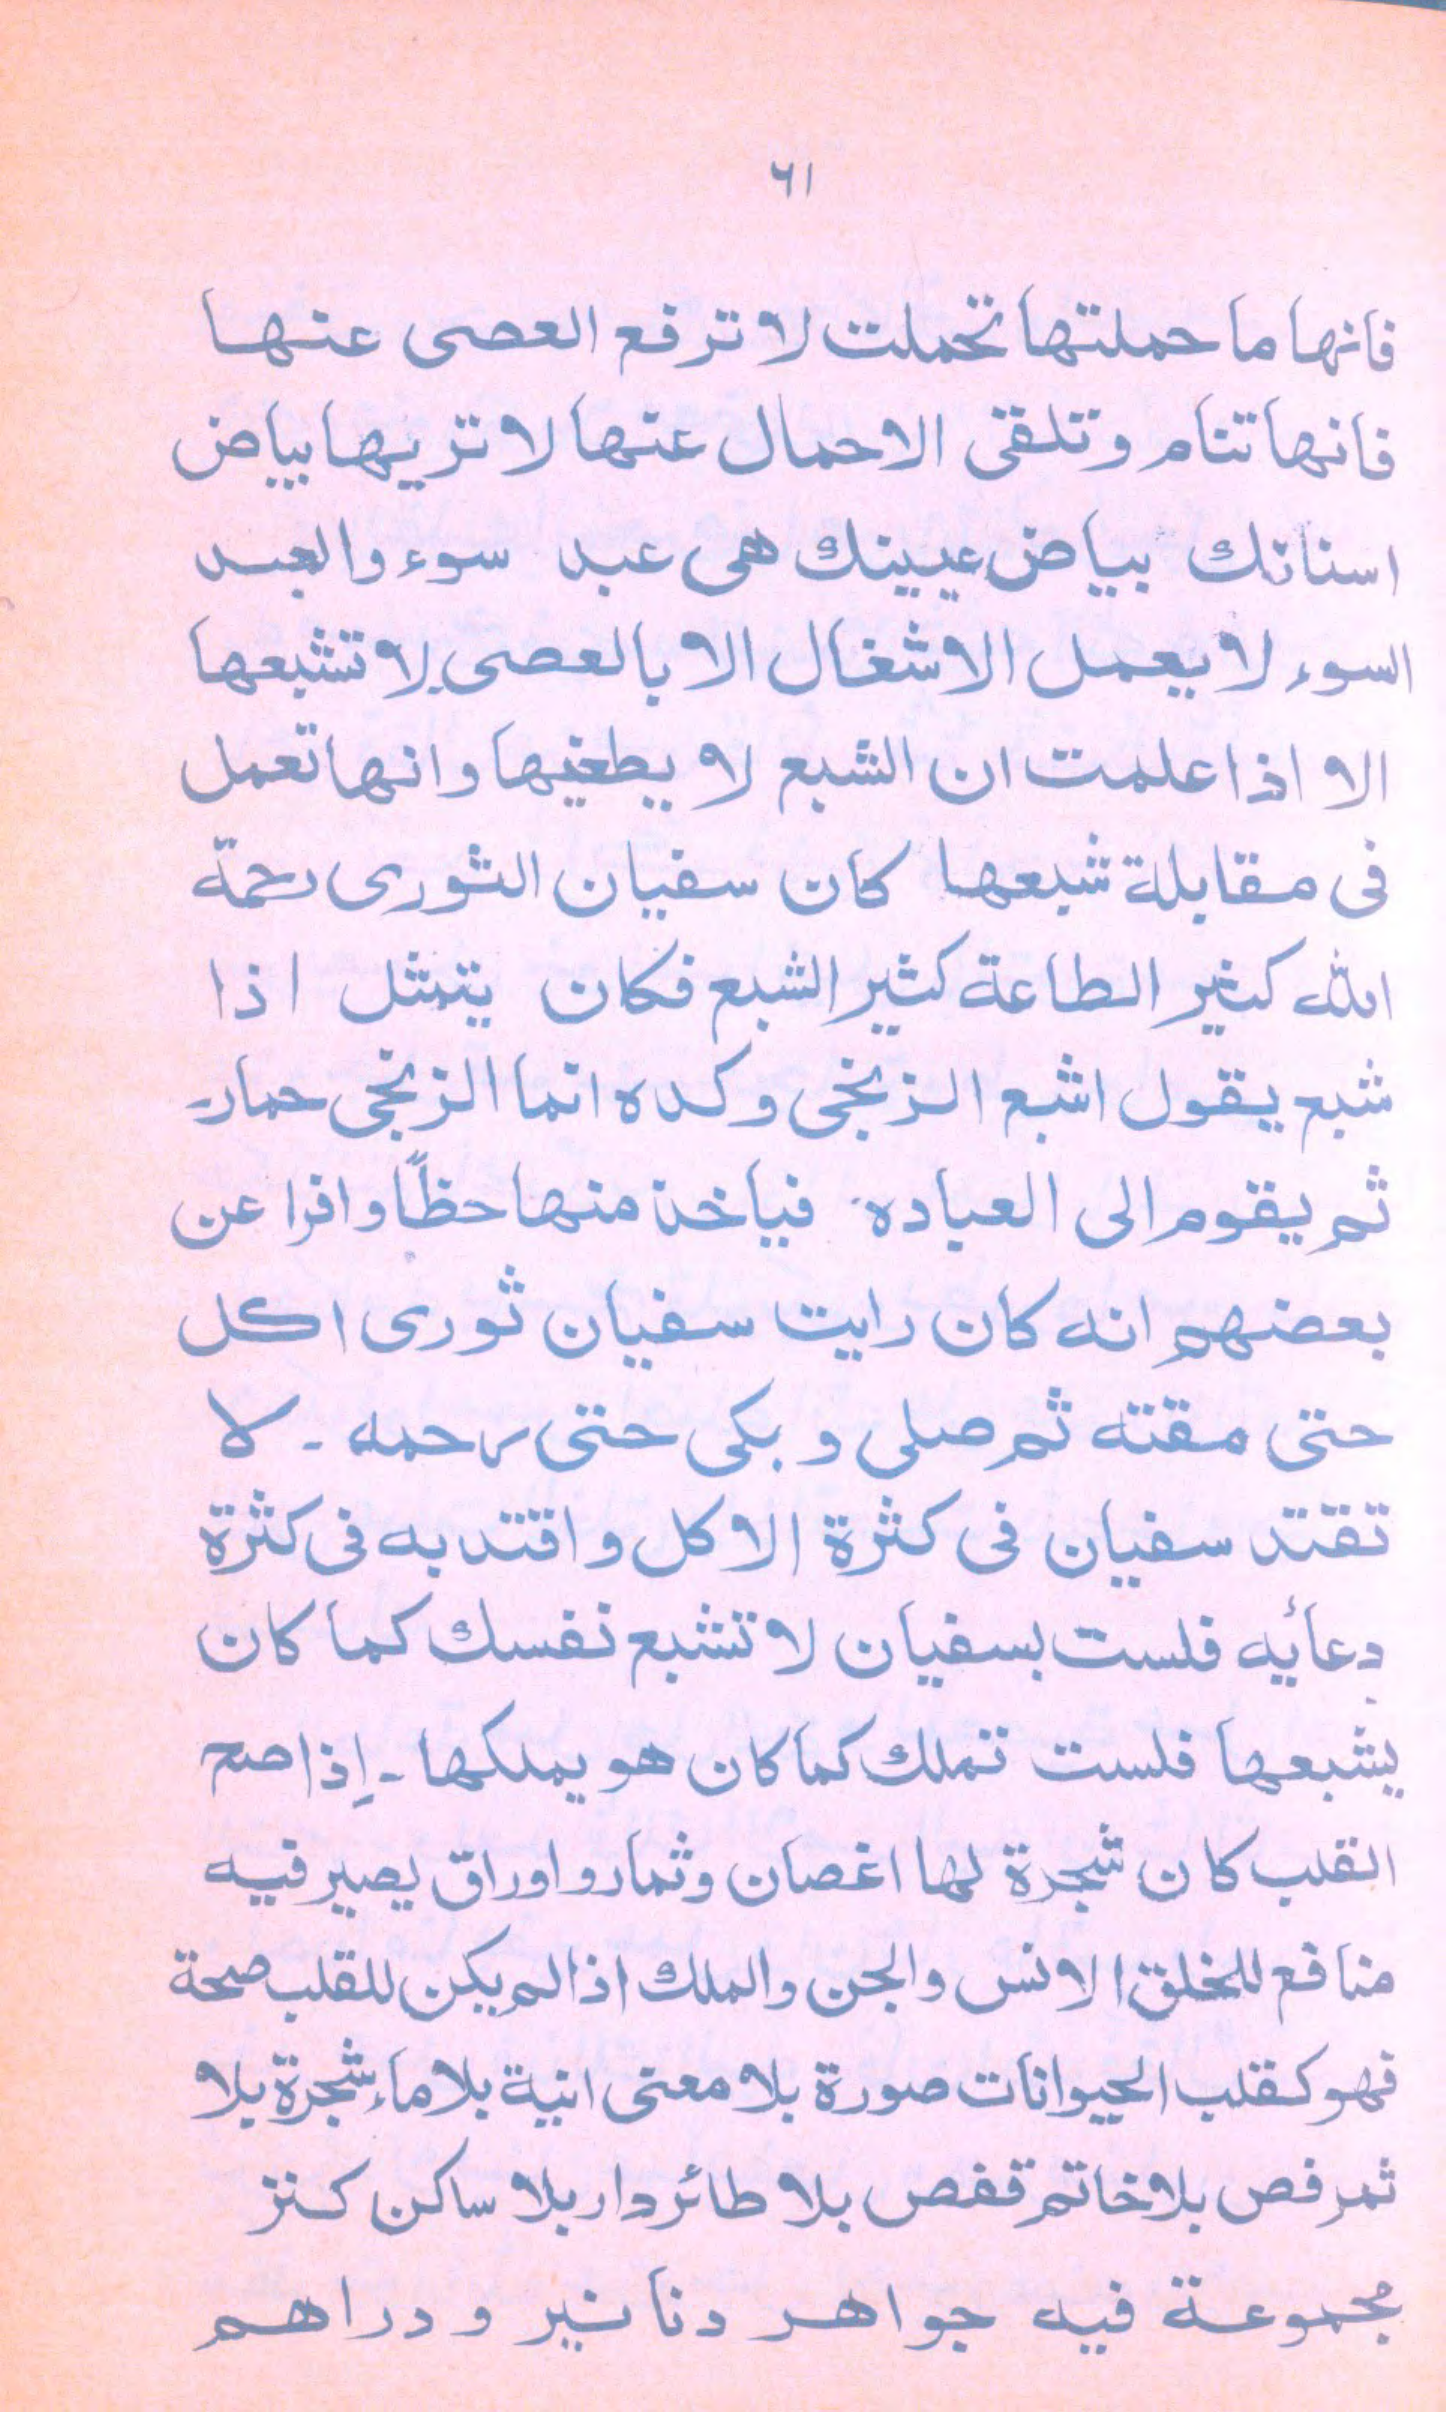 ٦١
فانها ما حملتها تحملت لا ترفع العصى عنها
فانها تنام وتلقى الاحمال عنها لا تريها بياض
اسنانك بياض عيينك هى عبد سوء والعبد
السوء لا يعمل الاشغال الا بالعصى لا تشبعها
الا اذا علمت ان الشبع لا يطغيها وانها تعمل
فى مقابلة شبعها كان سفيان الثورى رحمة
الله كثير الطاعة كثير الشبع فكان يتمثل اذا
شبع يقول اشبع الزنجى وكده انما الزنجى حمار۔
ثم يقوم الى العباده فياخذ منها حظًا وافرا عن
بعضهم انه كان رايت سفيان ثورى اكل
حتى مقته ثم صلى وبكى حتى رحمه ۔ لا
تقتد سفيان فى كثرة الاكل واقتد به فى كثرة
دعأيه فلست بسفيان لا تشبع نفسك كما كان
يشبعها فلست تملك كما كان هو يملكها ۔ إذا صح
القلب كان شجرة لها اغصان وثمار واوراق يصير فيه
منافع للخلق الانس والجن والملك اذا لم يكن للقلب صحة
فهو كقلب الحيوانات صورة بلا معنى انية بلا ماء شجرة بلا
ثمر فص بلا خاتم قفص بلا طائر دار بلا ساكن كنز
مجموعة فيه جواهر دنانير ودراهم